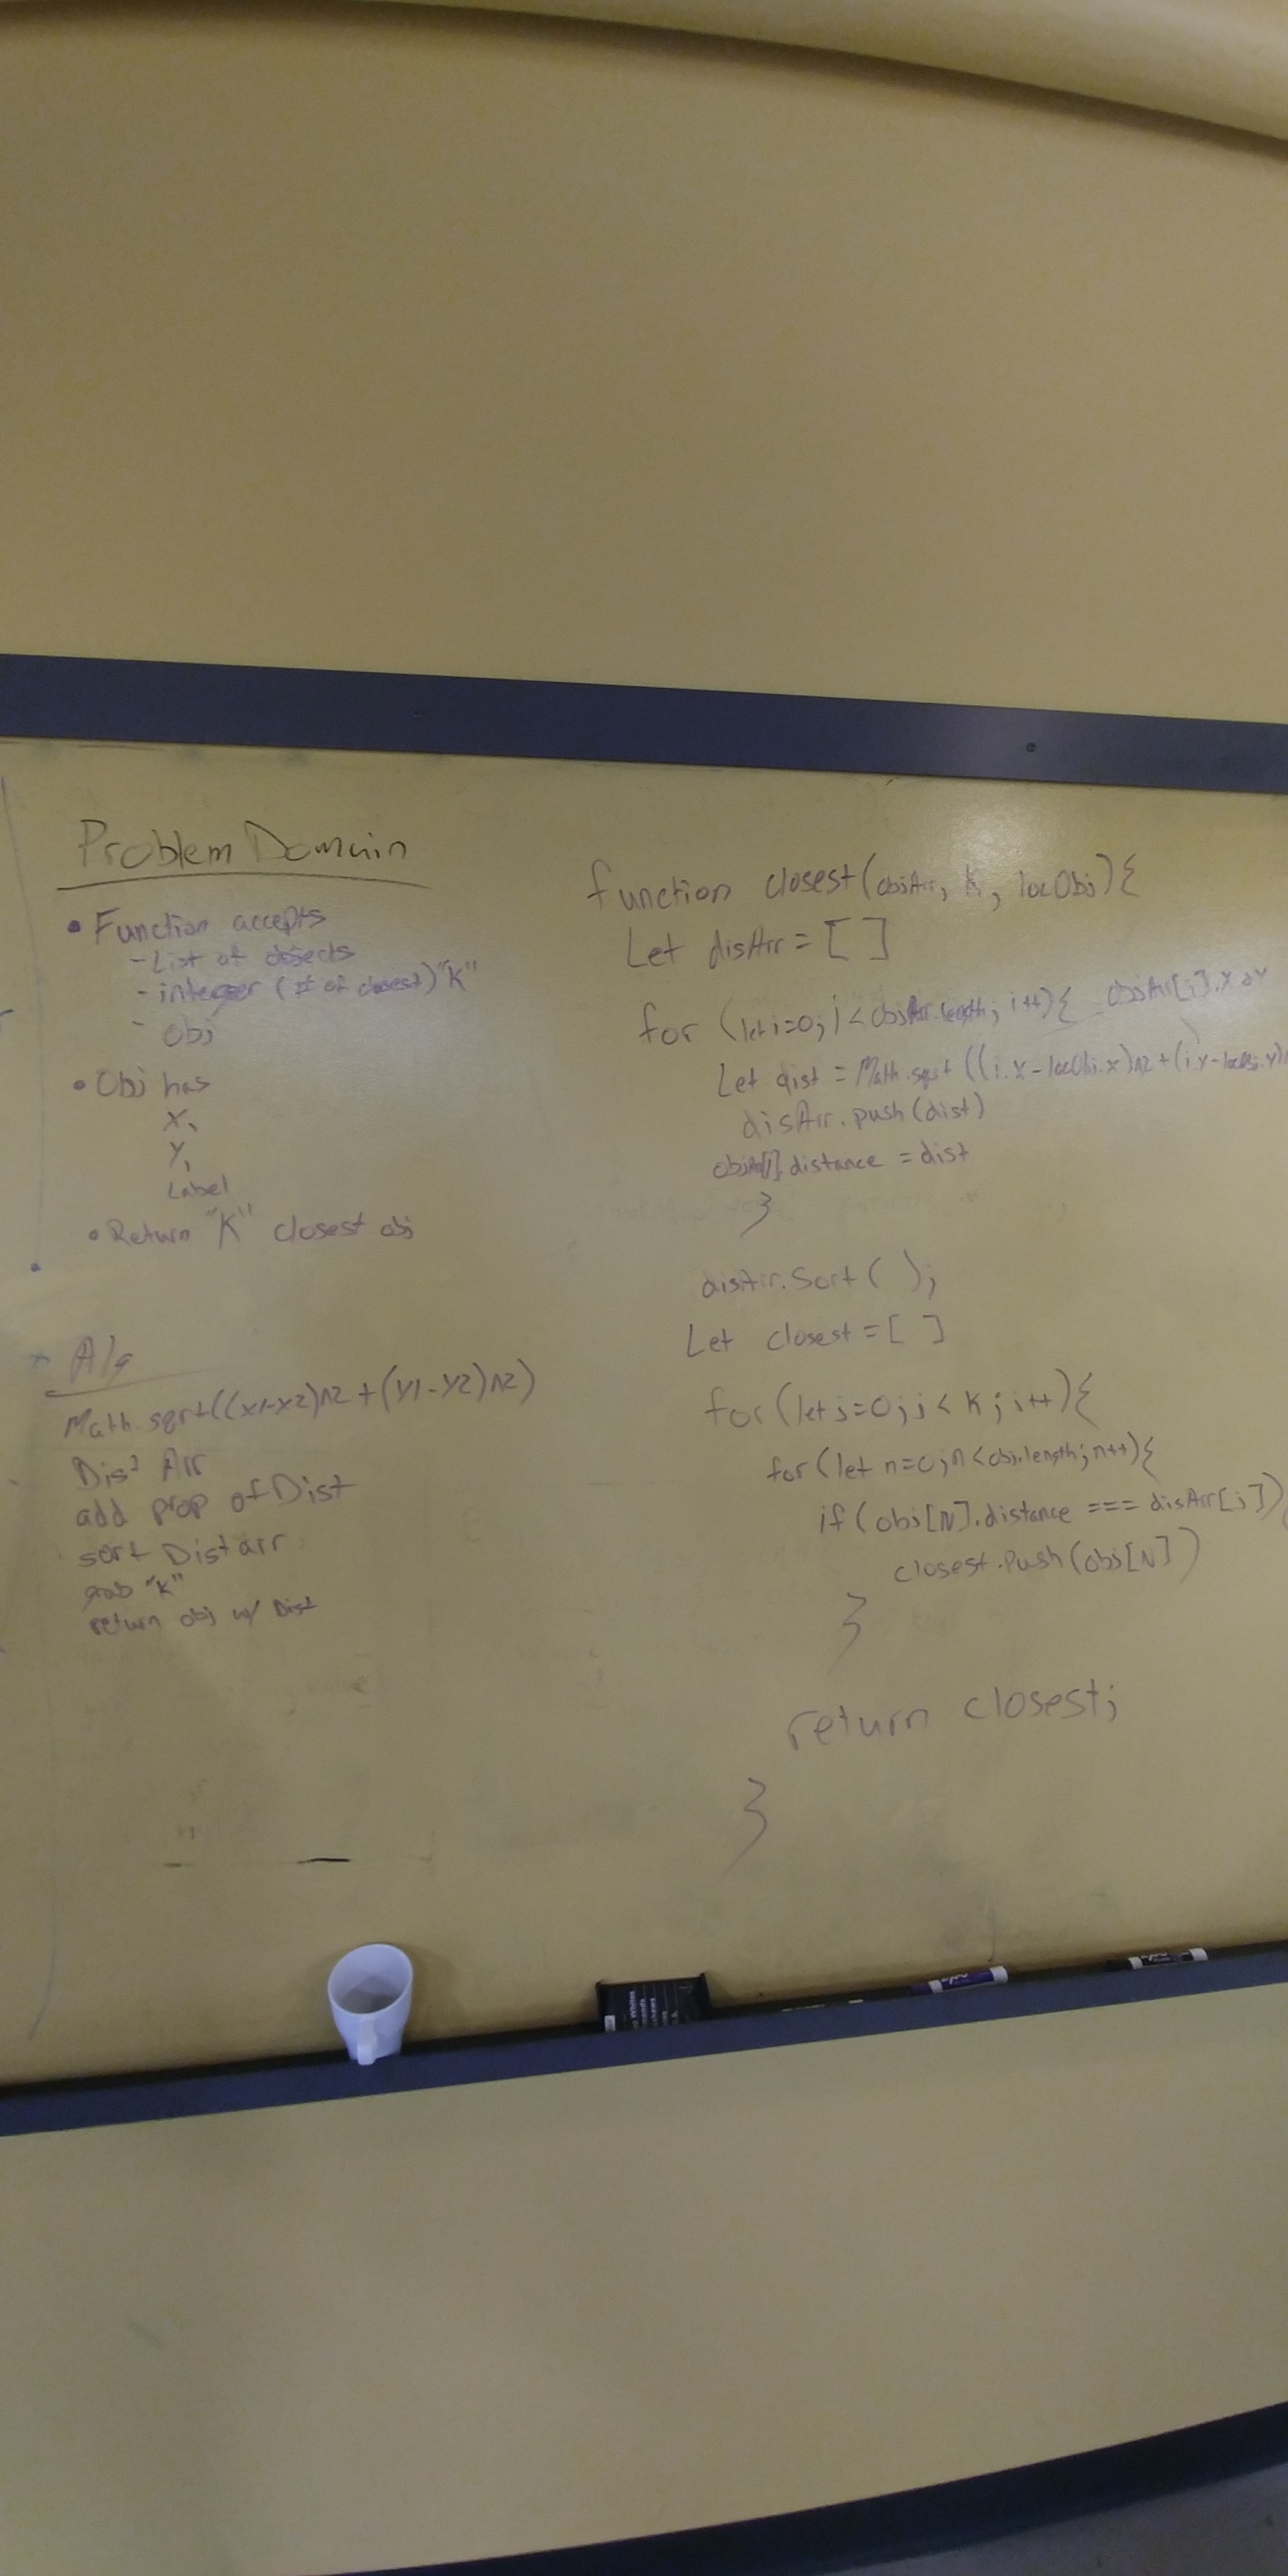 Problem Domain
• Function accepts
- List of objects
- integer (# of closest) "K"
- Obj
• Obj has
X,
Y,
Label
• Return "K" closest obj
Alg
Math.sqrt((x1-x2)^2 + (y1-y2)^2)
Dist Arr
add prop of Dist
sort Dist arr
grab "K"
return obj w/ Dist
function closest(objArr, K, locObj){
Let disArr = [ ]
for (let i=0; i < objArr.length; i++){ objArr[i].x or y
Let dist = Math.sqrt ((i.x - locObj.x)^2 + (i.y - locObj.y)^
disArr.push(dist)
objArr[i].distance = dist
}
disArr.sort( );
Let closest = [ ]
for (let j=0; j < K; i++){
for (let n=0; n < obj.length; n++){
if (obj[N].distance === disArr[j]){
closest.push(obj[N])
}
return closest;
}